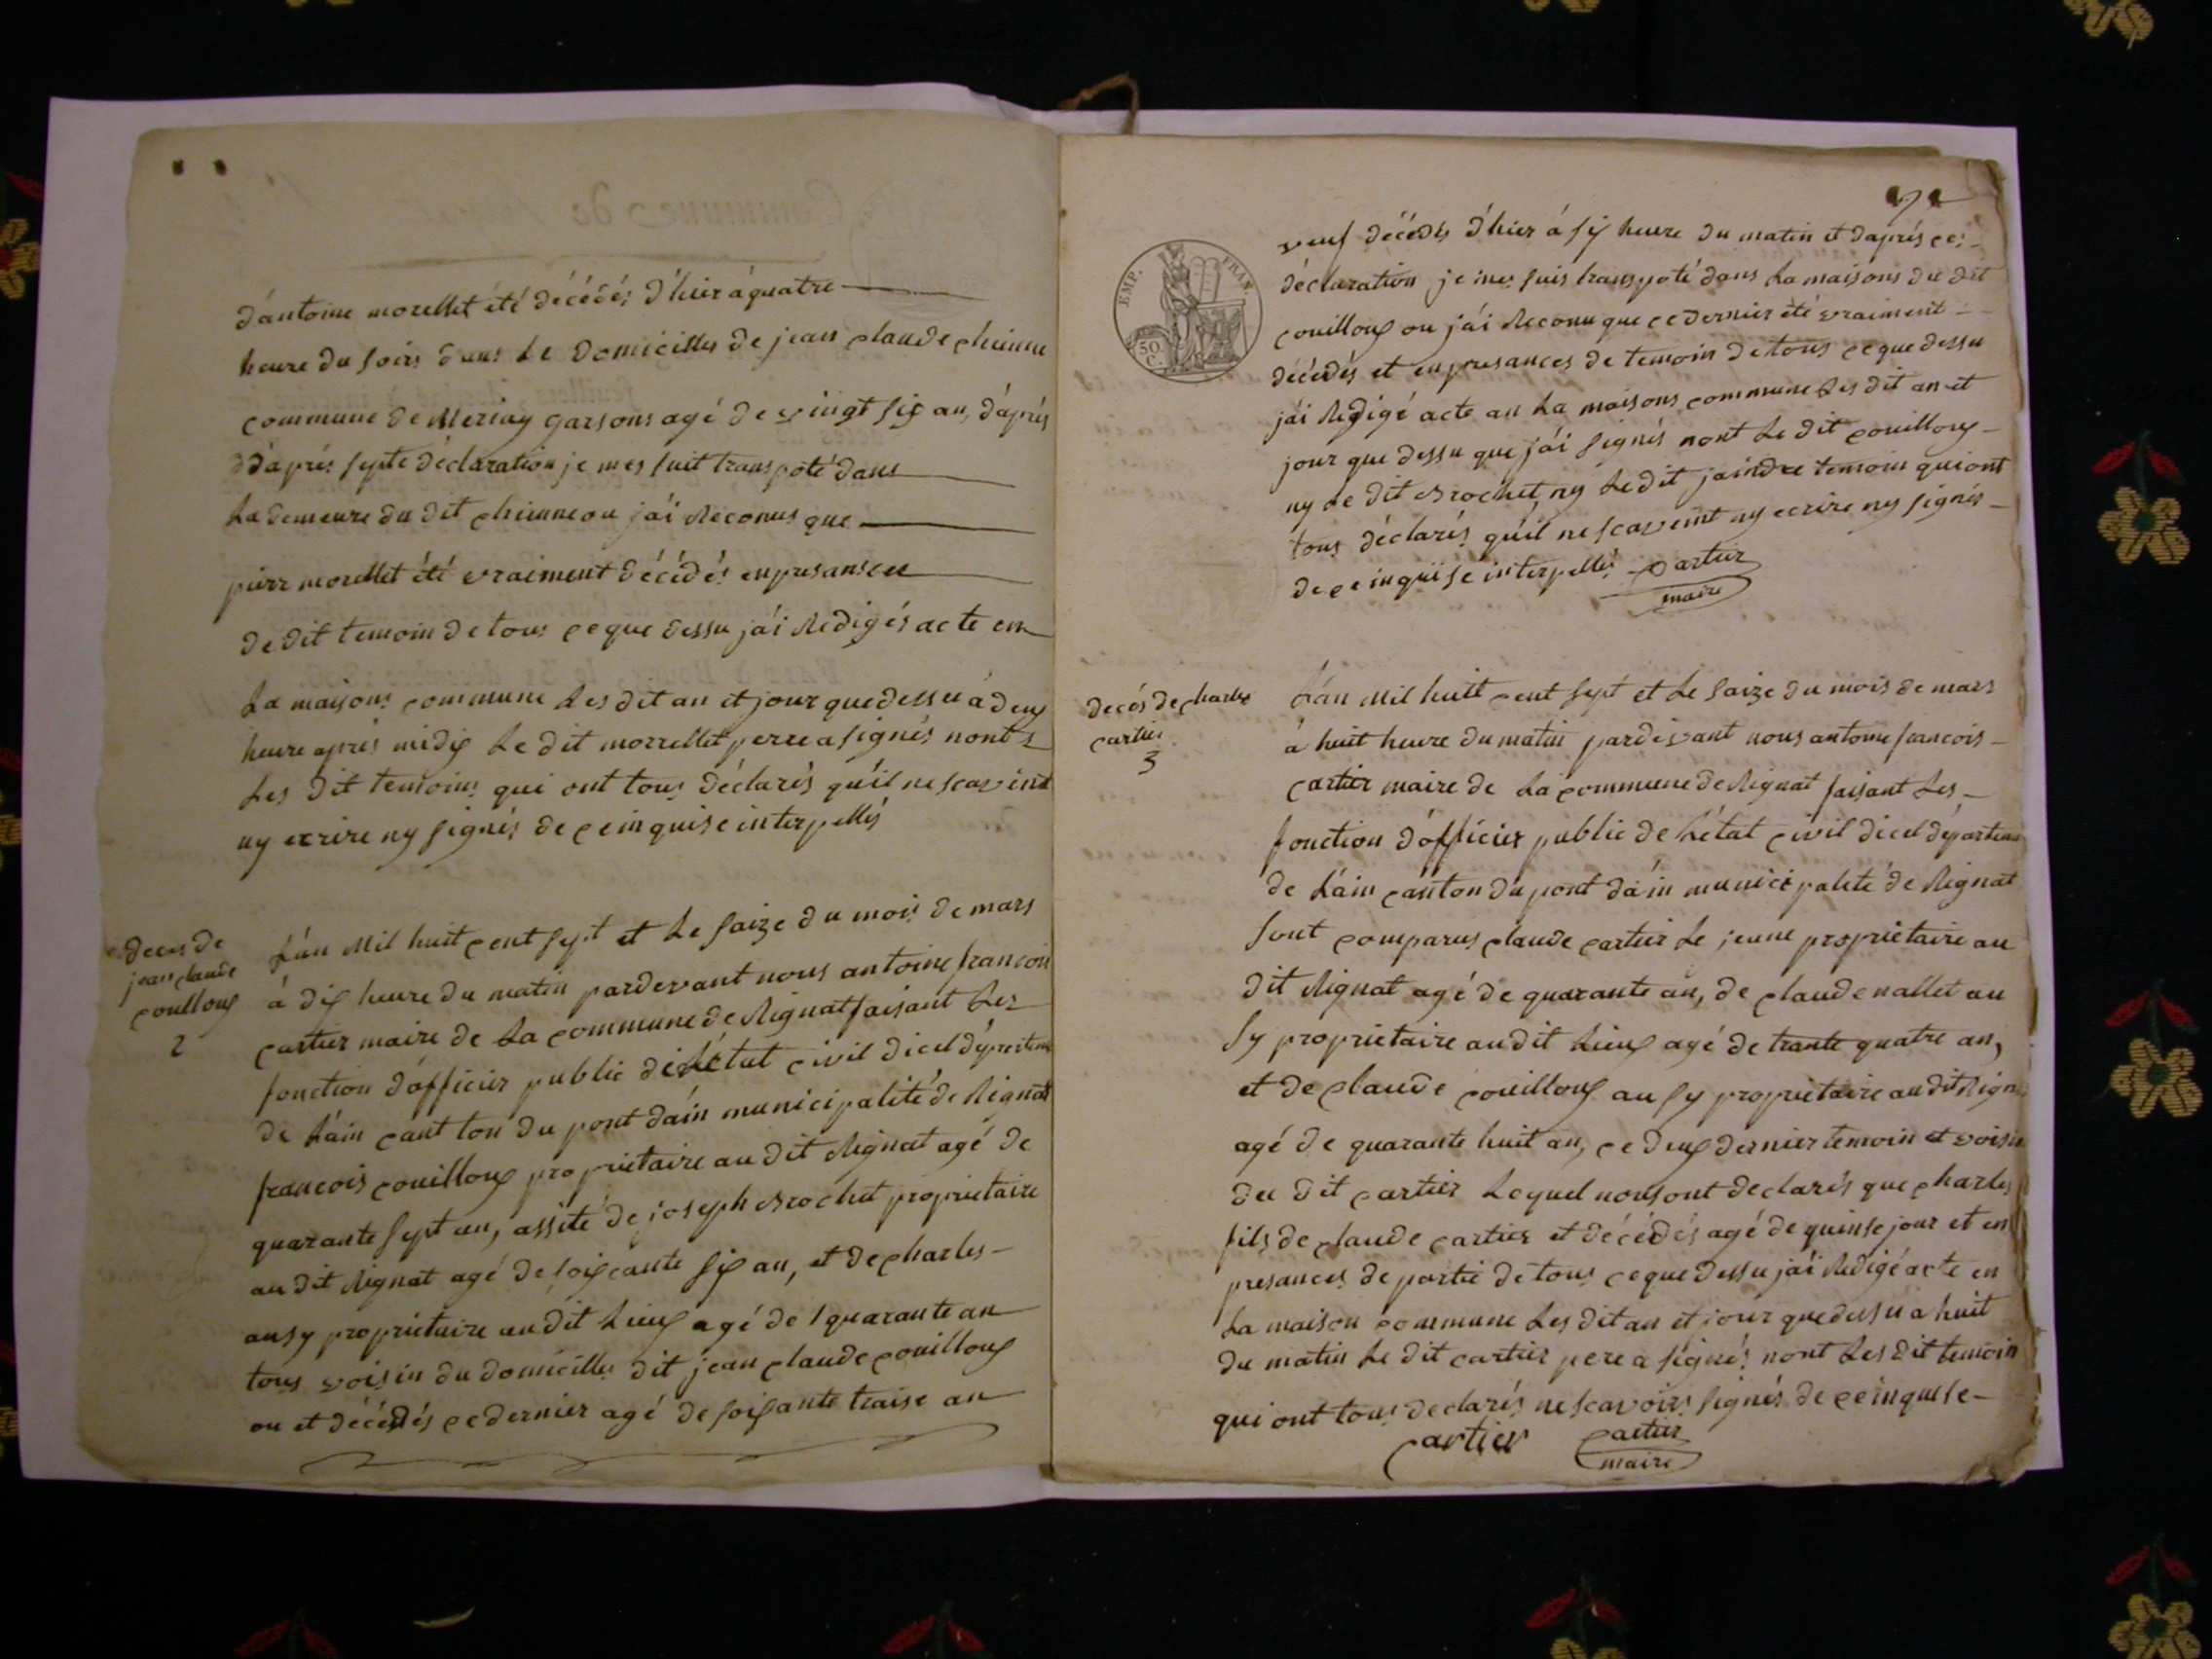 d'antoine morellet été décédés d'hier à quatre
heure du soirs dans le domicilles de jean claude chinne
commune de Meriay garsons agé de vingt six an, d'aprés
d d'aprés septe déclaration je mes suit transpoté dans
La demeure du dit chinne ou j'ai Reconus que
pierr morellet été vraiment décédés en presansce
de dit temoin de tous ce que dessu j'ai Redigés acte en
La maisons commune Les dit an et jour que dessu à deux
heure aprés midy Le dit morrellet perre a signés nont
Les dit temoins qui ont tous déclarés qu'il ne scavint
ny ecrire ny signés de ce inquise interpellés
deces de
jean claude
couilloux
2
L'an Mil huit cent sept et Le saize du mois de mars
à dix heure du matin pardevant nous antoine francois
cartier maire de La commune de Rignat faisant Les
fonction d'officier public de L'état civil d'icel départeme
de L'ain cant ton du pont d'ain municipalité de Rignat
francois couilloux proprietaire au dit Rignat agé de
quarante sept an, assité de joseph Brochet proprietaire
au dit Rignat agé de soixcante six an, et de charles
ausy proprietaire au dit Lieux agé de quarante an
tous voisin du domicilles dit jean claude couilloux
ou et décédés ce dernier agé de soixante traise an
EMP. FRAN.
50 C.
veuf décédés d'hier à six heure du matin et d'aprés ces
déclaration je mes suis transpoté dans La maisons du dit
couilloux ou j'ai Reconu que ce dernier été vraiment
décédés et en presances de temoin de tous ce que dessu
j'ai Redigé acte an La maisons commune Les dit an et
jour que dessu que j'ai signés nont Le dit couilloux
ny Le dit Brochet ny Le dit jaindre temoin qui ont
tous déclarés qu'il ne scaveint ny ecrire ny signés
de ce inquise interpellés Cartier
maire
decés de charles
cartier
3
L'an Mil huit cent sept et Le saize du mois de mars
à huit heure du matin pardevant nous antoine francois
cartier maire de La commune de Rignat faisant Les
fonction d'officier public de L'état civil d'icel départeme
de L'ain canton du pont d'ain municipalité de Rignat
sont comparus claude cartier Le jeune proprietaire au
dit Rignat agé de quarante an, de claude nallet au
sy proprietaire au dit Lieux agé de trante quatre an,
et de claude couilloux au sy proprietaire au dit Rigna
agé de quarante huit an, ce deux dernier temoin et voisin
du dit cartier Lequel nous ont declarés que charles
fils de claude cartier et décédés agé de quinse jour et en
presances de partie de tous ce que dessu j'ai Redigé acte en
La maison commune Les dit an et jour que dessu a huit
du matin Le dit cartier pere a signés nont Les dit temoin
qui ont tous declarés ne scavoirs signés de ce inquise
cartier cartier
maire